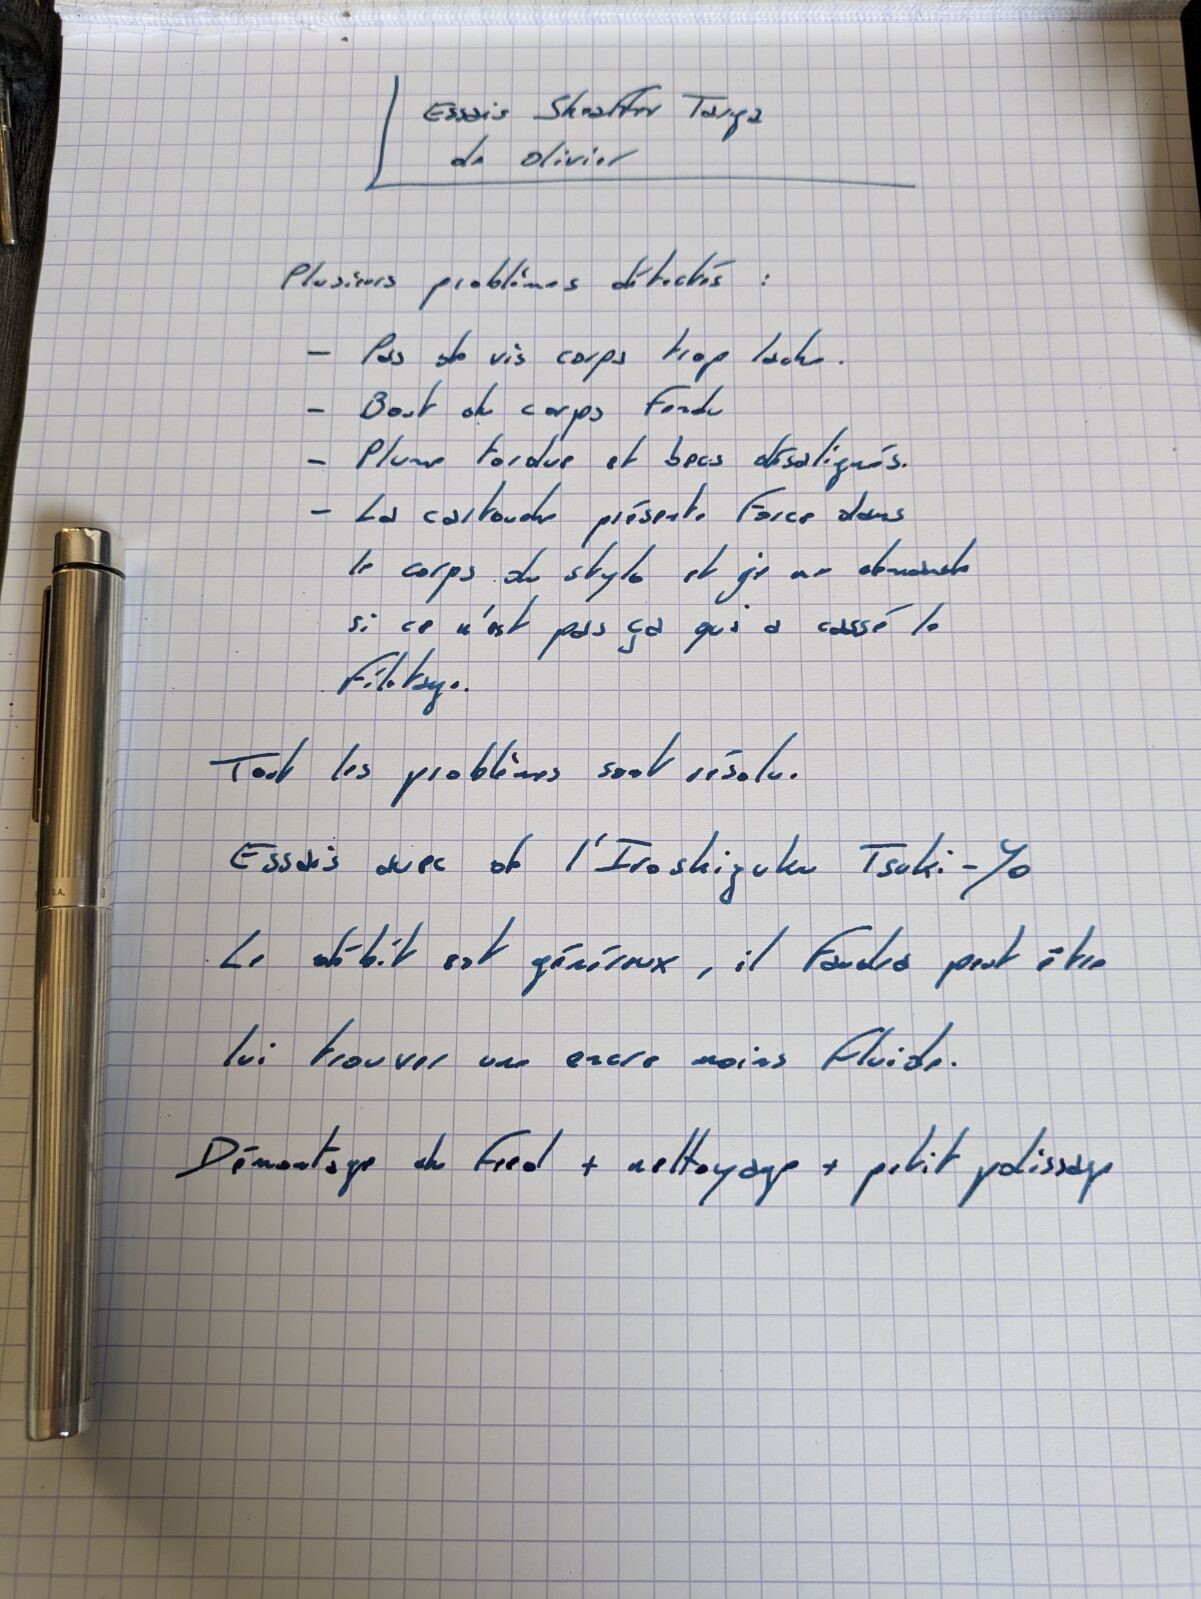 Essais Sheaffer Targa
de Olivier
Plusieurs problèmes détectés :
- Pas de vis corps trop lache.
- Bout du corps Fendu
- Plume tordue et becs désalignés.
- La cartouche présente Force dans
le corps du stylo et je me demande
si ce n'est pas ça qui a cassé le
Filetage.
Tout les problèmes sont résolu.
Essais avec de l'Iroshizuku Tsuki-Yo
Le débit est généreux, il Faudra peut être
lui trouver une encre moins Fluide.
Démontage du Feed + nettoyage + petit polissage
S.A.